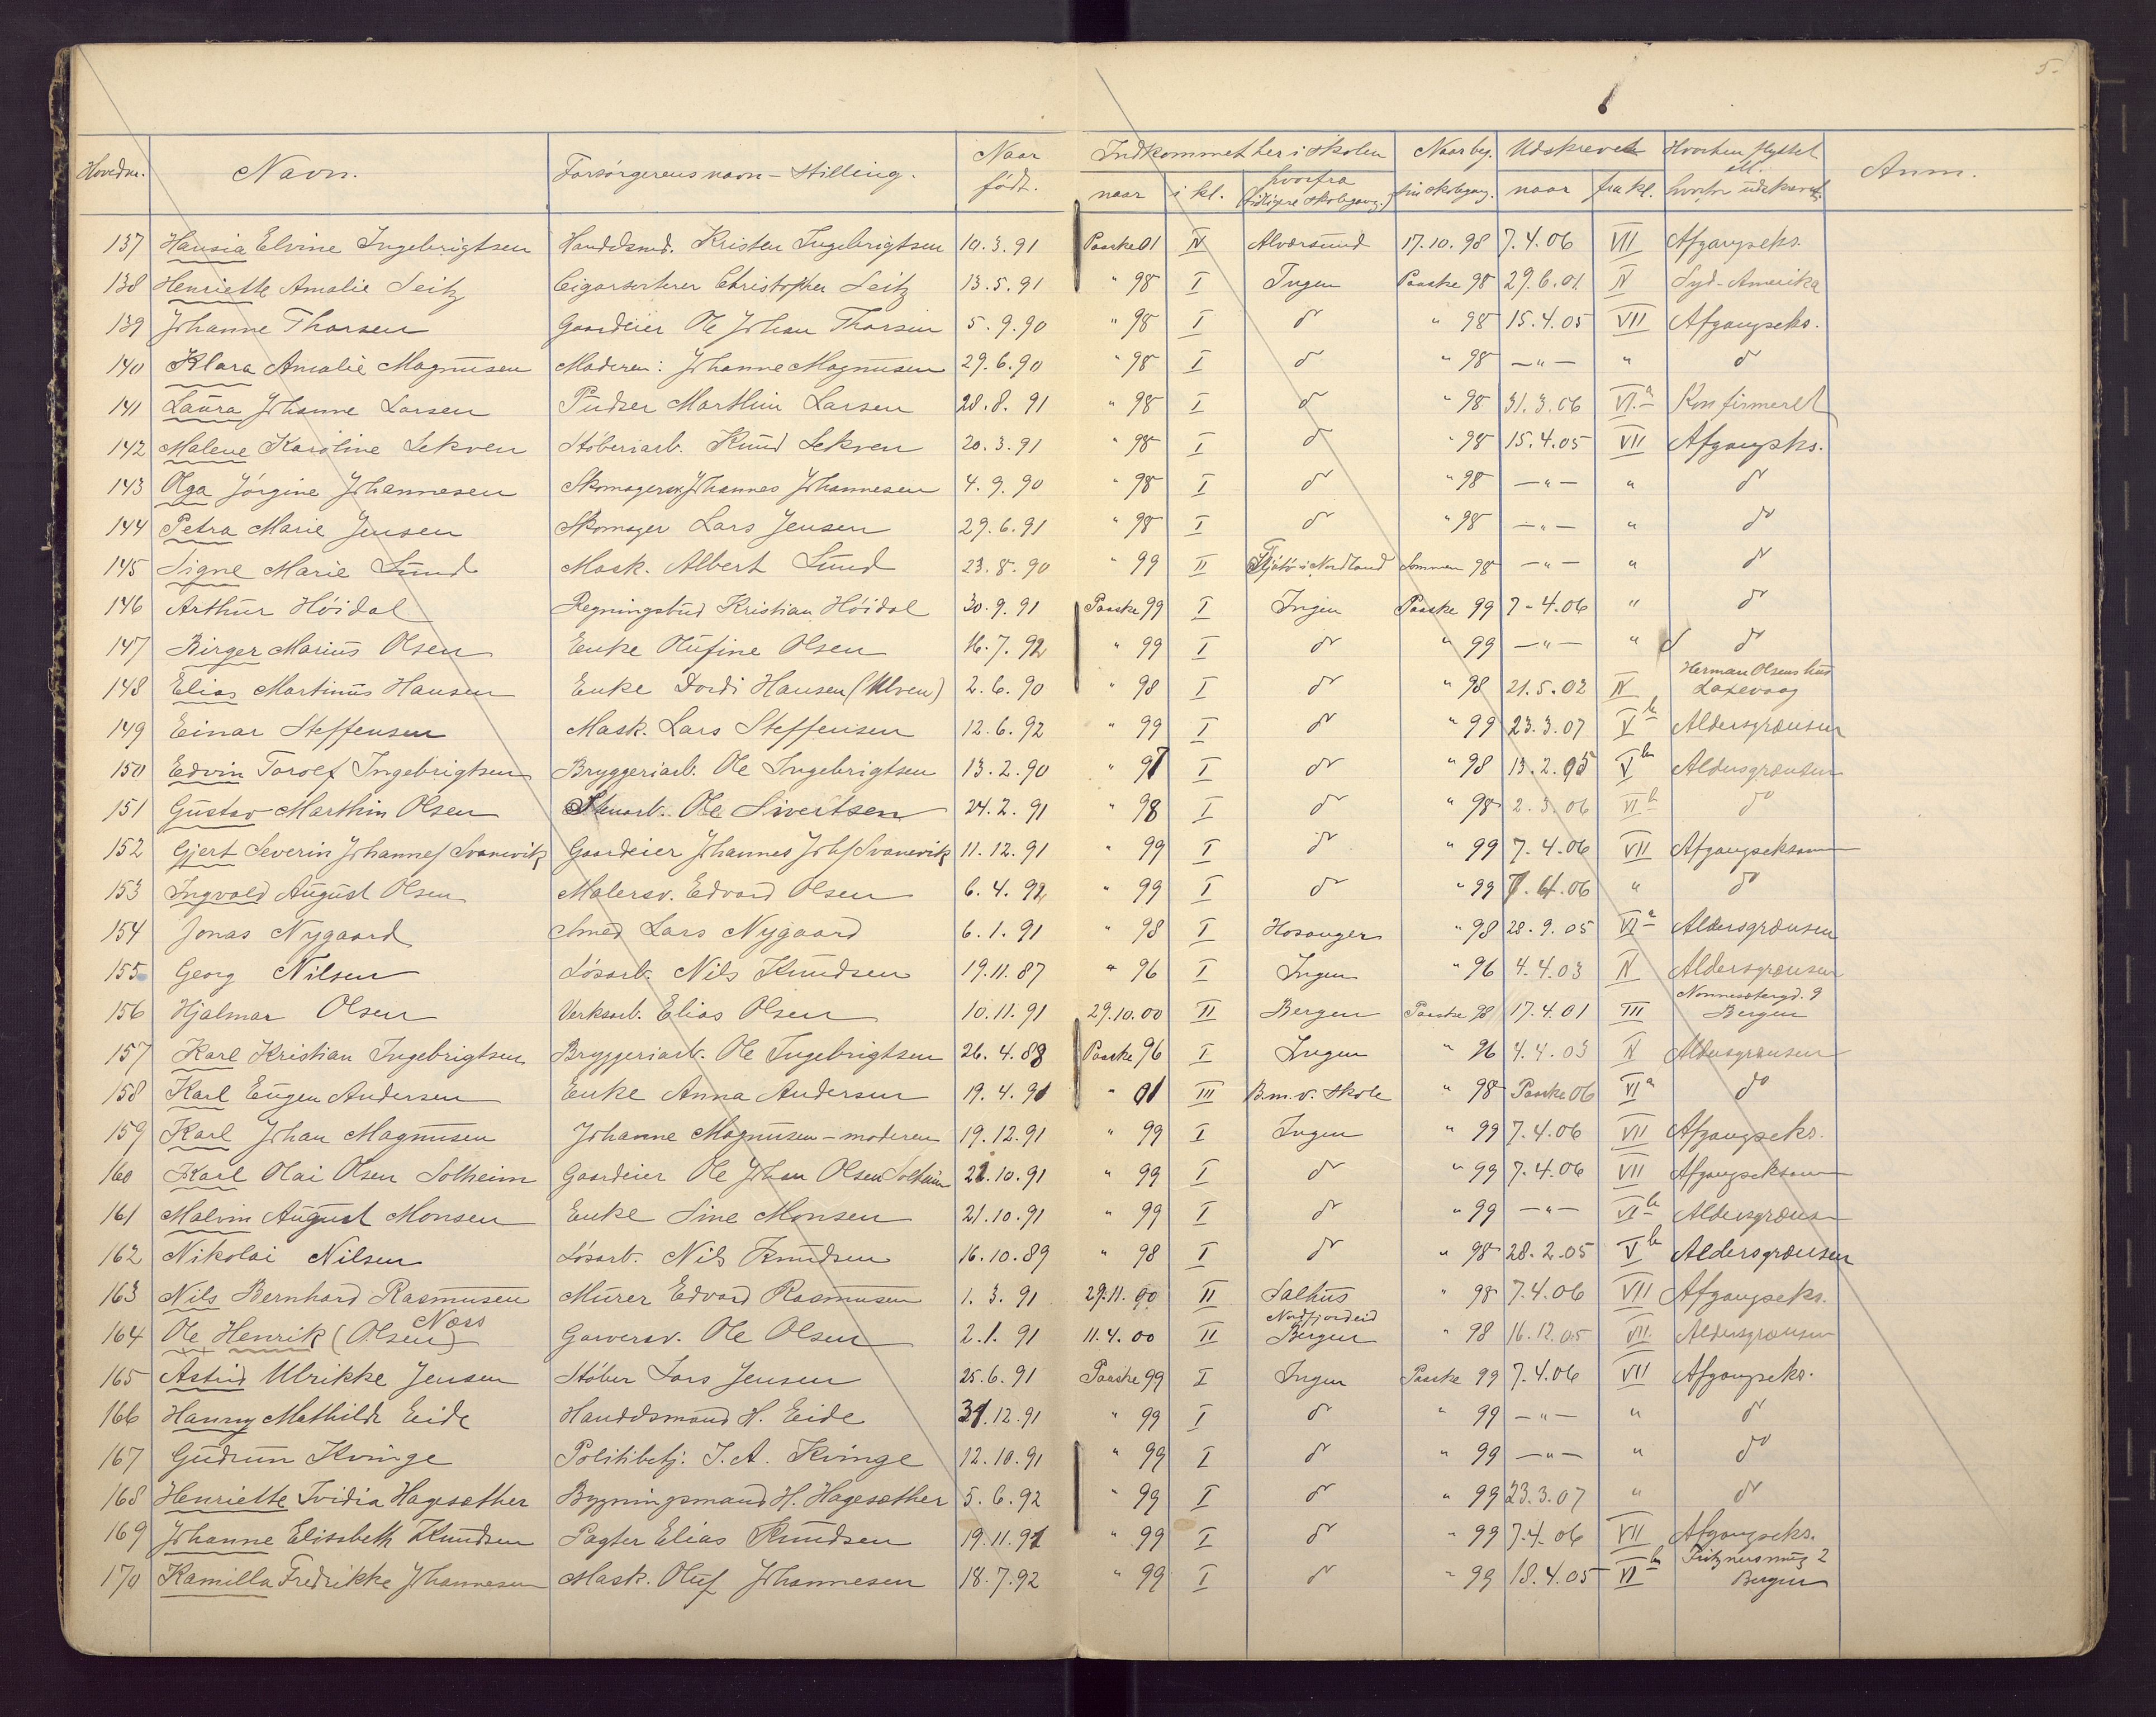 5.
Hovednr. Navn. Forsørgerens navn - Stilling. Naar født. Indkommet her i skolen Naar beg. Udskrevet Hvorhen flyttet
naar i kl. hvorfra (tidligere skolegang.) sin skolegang. naar fra kl. ell. hvorfor udskrevet. Anm.
137 Hansia Elvine Ingebrigtsen Handelsmd. Kristen Ingebrigtsen 10.3.91 Paaske 01 IV Alversund 17.10.98 7.4.06 VII Afgangseks.
138 Henriette Amalie Seitz Cigarsorterer Christopher Seitz 13.5.91 " 98 I Ingen Paaske 98 29.6.01 IV Syd-Amerika
139 Johanne Thorsen Gaardeier Ole Johan Thorsen 5.9.90 " 98 I do " 98 15.4.05 VII Afgangseks.
140 Klara Amalie Magnusen Moderen: Johanne Magnusen 29.6.90 " 98 I do " 98 —"— " do
141 Laura Johanne Larsen Pudser Marthin Larsen 28.8.91 " 98 I do " 98 31.3.06 VI a Konfirmeret
142 Malene Karoline Lekven Støberiarb. Knud Lekven 20.3.91 " 98 I do " 98 15.4.05 VII Afgangseks.
143 Olga Jørgine Johannesen Skomager Johannes Johannesen 4.9.90 " 98 I do " 98 —"— " do
144 Petra Marie Jensen Skomager Lars Jensen 29.6.91 " 98 I do " 98 —"— " do
145 Signe Marie Lund Mask. Albert Lund 23.8.90 " 99 II Tjøtø i Nordland Sommeren 98 —"— " do
146 Arthur Høidal Regningsbud Kristian Høidal 30.9.91 Paaske 99 I Ingen Paaske 99 7-4.06 " do
147 Birger Marius Olsen Enke Olufine Olsen 16.7.92 " 99 I do " 99 —"— " do
148 Elias Martinus Hansen Enke Dordi Hansen (Ulven) 2.6.90 " 98 I do " 98 21.5.02 IV Herman Olsens hus Laxevaag
149 Einar Steffensen Mask. Lars Steffensen 12.6.92 " 99 I do " 99 23.3.07 V b Aldersgrænsen
150 Edvin Torolf Ingebrigtsen Bryggeriarb. Ole Ingebrigtsen 13.2.90 " 97 I do " 98 13.2.05 V b Aldersgrænsen
151 Gustav Marthin Olsen Ole Sivertsen 24.2.91 " 98 I do " 98 2.3.06 VI b do
152 Gjert Severin Johannes Svanevik Gaardeier Johannes Johs Svanevik 11.12.91 " 99 I do " 99 7.4.06 VII Afgangseksam
153 Ingvald August Olsen Malersv. Edvard Olsen 6.4.92 " 99 I do " 99 7.4.06 " do
154 Jonas Nygaard Smed Lars Nygaard 6.1.91 " 98 I Hosanger " 98 28.9.05 VI a Aldersgrænsen
155 Georg Nilsen Løsarb. Nils Knudsen 19.11.87 " 96 I Ingen " 96 4.4.03 IV Aldersgrænsen
156 Hjalmar Olsen Verksarb. Elias Olsen 10.11.91 29.10.00 II Bergen Paaske 98 17.4.01 III Nonnesætergd. 9 Bergen
157 Karl Kristian Ingebrigtsen Bryggeriarb. Ole Ingebrigtsen 26.4.88 Paaske 96 I Ingen " 96 4.4.03 IV Aldersgrænsen
158 Karl Eugen Andersen Enke Anna Andersen 19.4.91 " 01 III B.m.v. Skole " 98 Paaske 06 VI a do
159 Karl Johan Magnusen Johanne Magnusen - moderen 19.12.91 " 99 I Ingen " 99 7.4.06 VII Afgangseks.
160 Karl Olai Olsen Solheim Gaardeier Ole Johan Olsen Solheim 21.10.91 " 99 I do " 99 7.4.06 VII Afgangseksam
161 Malvin August Monsen Enke Sine Monsen 21.10.91 " 99 I do " 99 —"— VI b Aldersgræns
162 Nikolai Nilsen Løsarb. Nils Knudsen 16.10.89 " 98 I do " 98 28.2.05 V b Aldersgrænsen
163 Nils Bernhard Rasmusen Murer Edvard Rasmusen 1.3.91 29.11.90 II Salhus " 98 7.4.06 VII Afgangseks.
164 Ole Henrik (Olsen) Næss Garversv. Ole Olsen 2.1.91 11.4.00 II Nordfjordeid Bergen " 98 16.12.05 VII. Aldersgrænsen
165 Astrid Ulrikke Jensen Støber Lars Jensen 25.6.91 Paaske 99 I Ingen Paaske 99 7.4.06 VII Afgangseks.
166 Hanny Mathilde Eide Handelsmand H. Eide 31.12.91 " 99 I do " 99 —"— " do
167 Gudrun Kvinge Politibetj. I.A. Kvinge 12.10.91 " 99 I do " 99 —"— " do
168 Henriette Tvidia Hagesæther Bygningsmand H. Hagesæther 5.6.92 " 99 I do " 99 23.3.07 " do
169 Johanne Elisabeth Knudsen Pagter Elias Knudsen 19.11.91 " 99 I do " 99 7.4.06 VII Afgangseks.
170 Kamilla Fredrikke Johannesen Mask. Oluf Johannesen 18.7.92 " 99 I do " 99 18.4.05 VI b Fritznersmug 2 Bergen